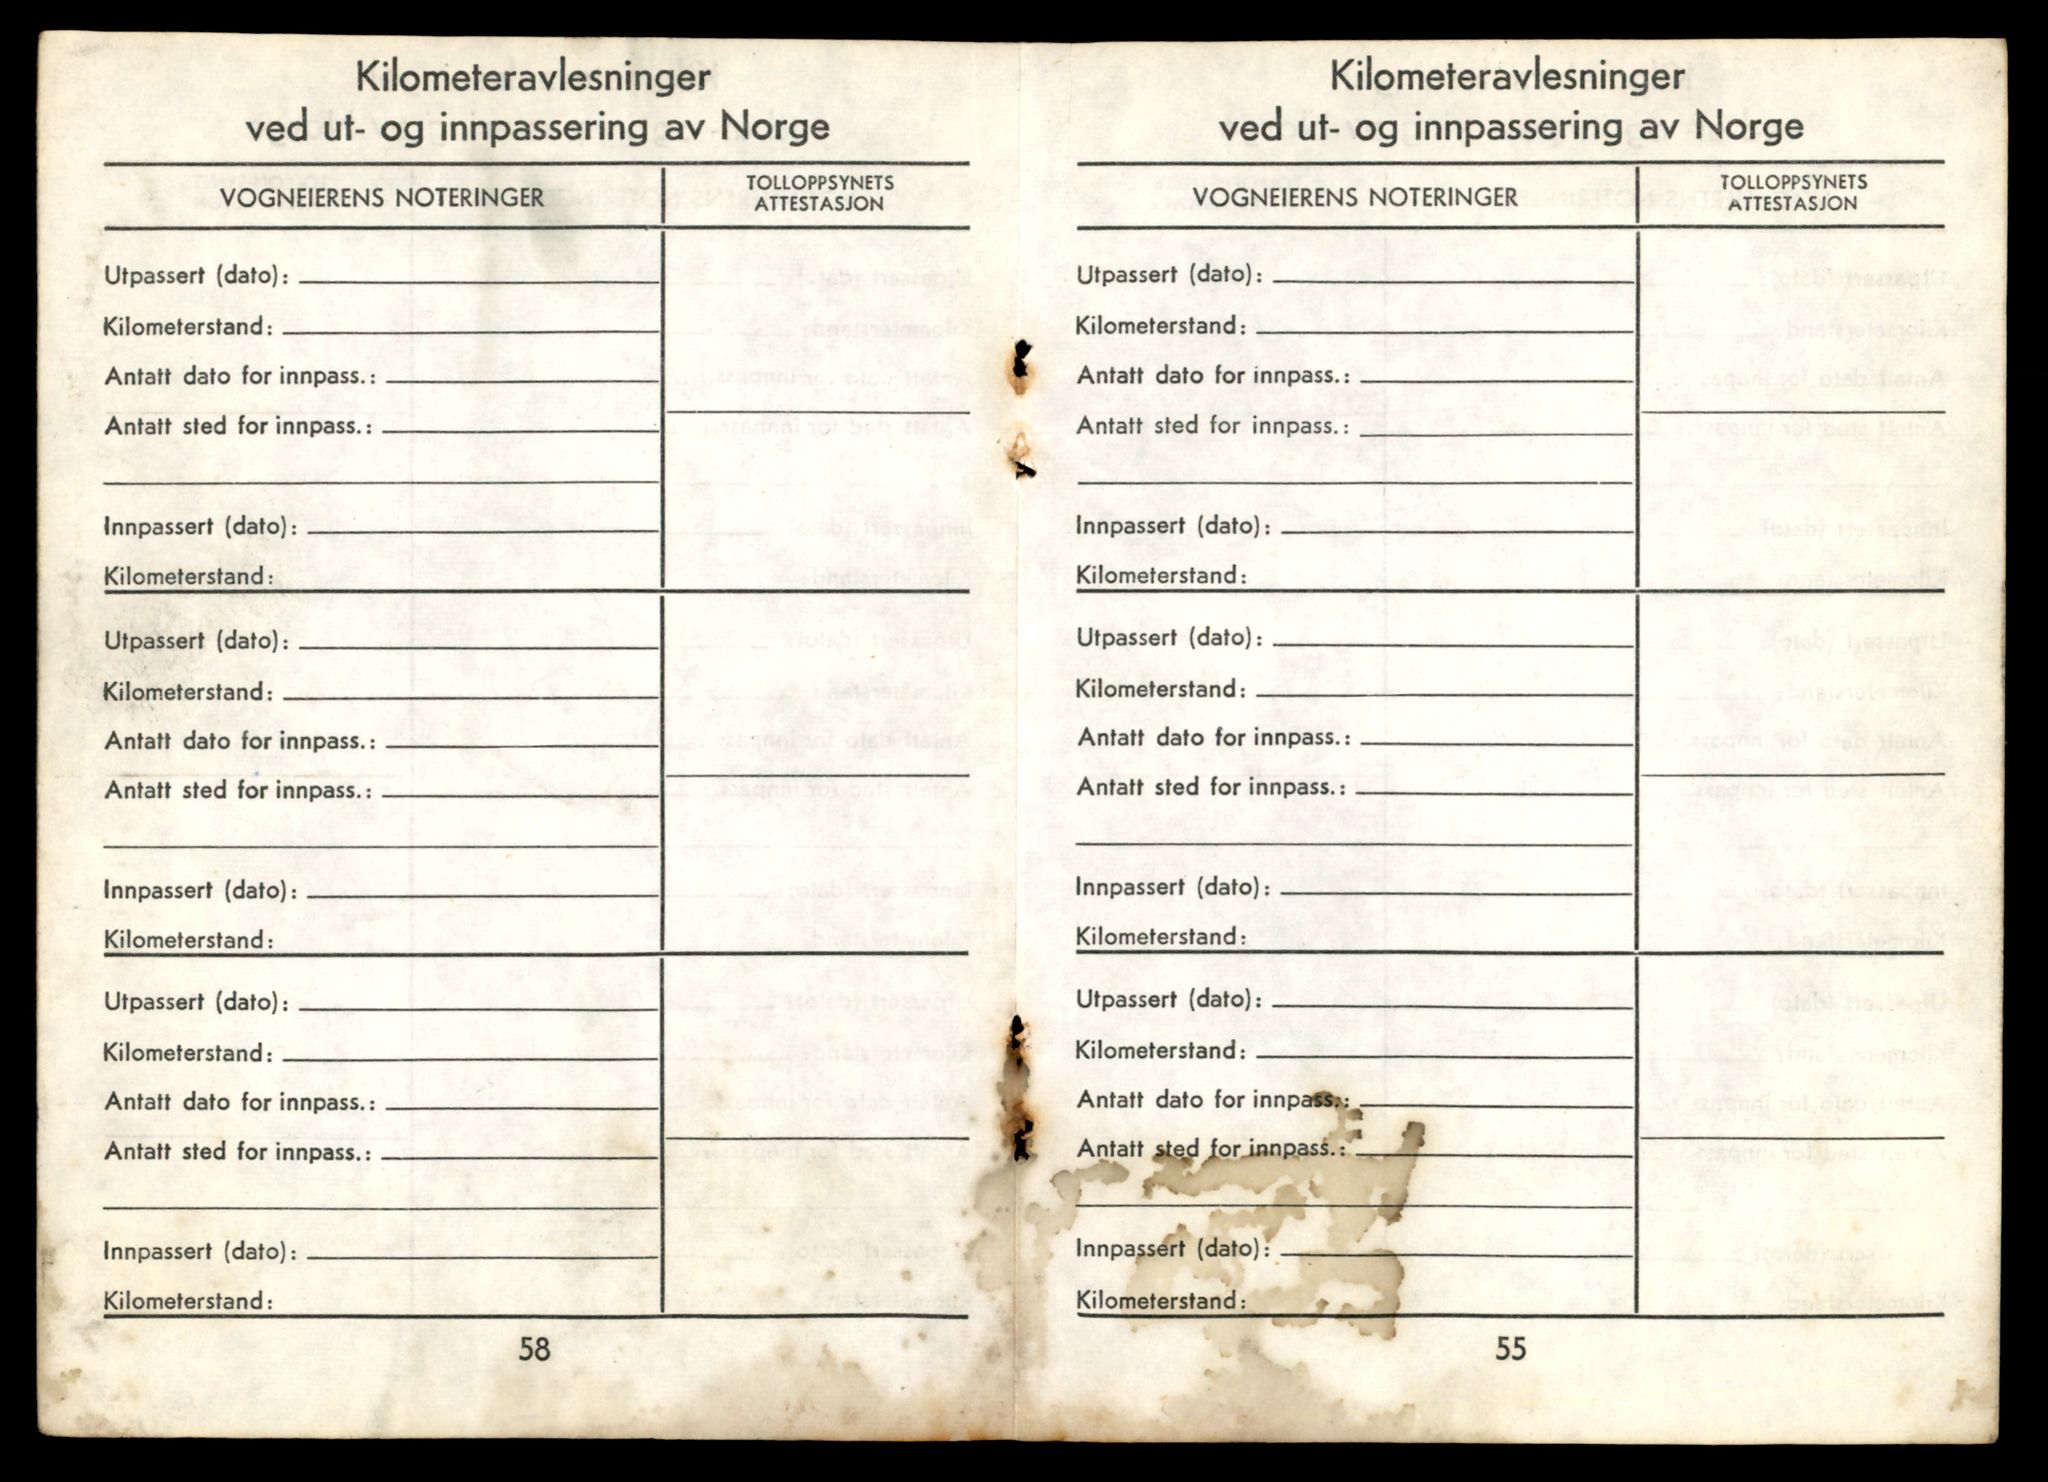 Kilometeravlesninger
ved ut- og innpassering av Norge
VOGNEIERENS NOTERINGER
TOLLOPPSYNETS
ATTESTASJON
Utpassert (dato):
Kilometerstand:
Antatt dato for innpass.:
Antatt sted for innpass.:
Innpassert (dato):
Kilometerstand:
Utpassert (dato):
Kilometerstand:
Antatt dato for innpass.:
Antatt sted for innpass.:
Innpassert (dato):
Kilometerstand:
Utpassert (dato):
Kilometerstand:
Antatt dato for innpass.:
Antatt sted for innpass.:
Innpassert (dato):
Kilometerstand:
58
Kilometeravlesninger
ved ut- og innpassering av Norge
VOGNEIERENS NOTERINGER
TOLLOPPSYNETS
ATTESTASJON
Utpassert (dato):
Kilometerstand:
Antatt dato for innpass.:
Antatt sted for innpass.:
Innpassert (dato):
Kilometerstand:
Utpassert (dato):
Kilometerstand:
Antatt dato for innpass.:
Antatt sted for innpass.:
Innpassert (dato):
Kilometerstand:
Utpassert (dato):
Kilometerstand:
Antatt dato for innpass.:
Antatt sted for innpass.:
Innpassert (dato):
Kilometerstand:
55